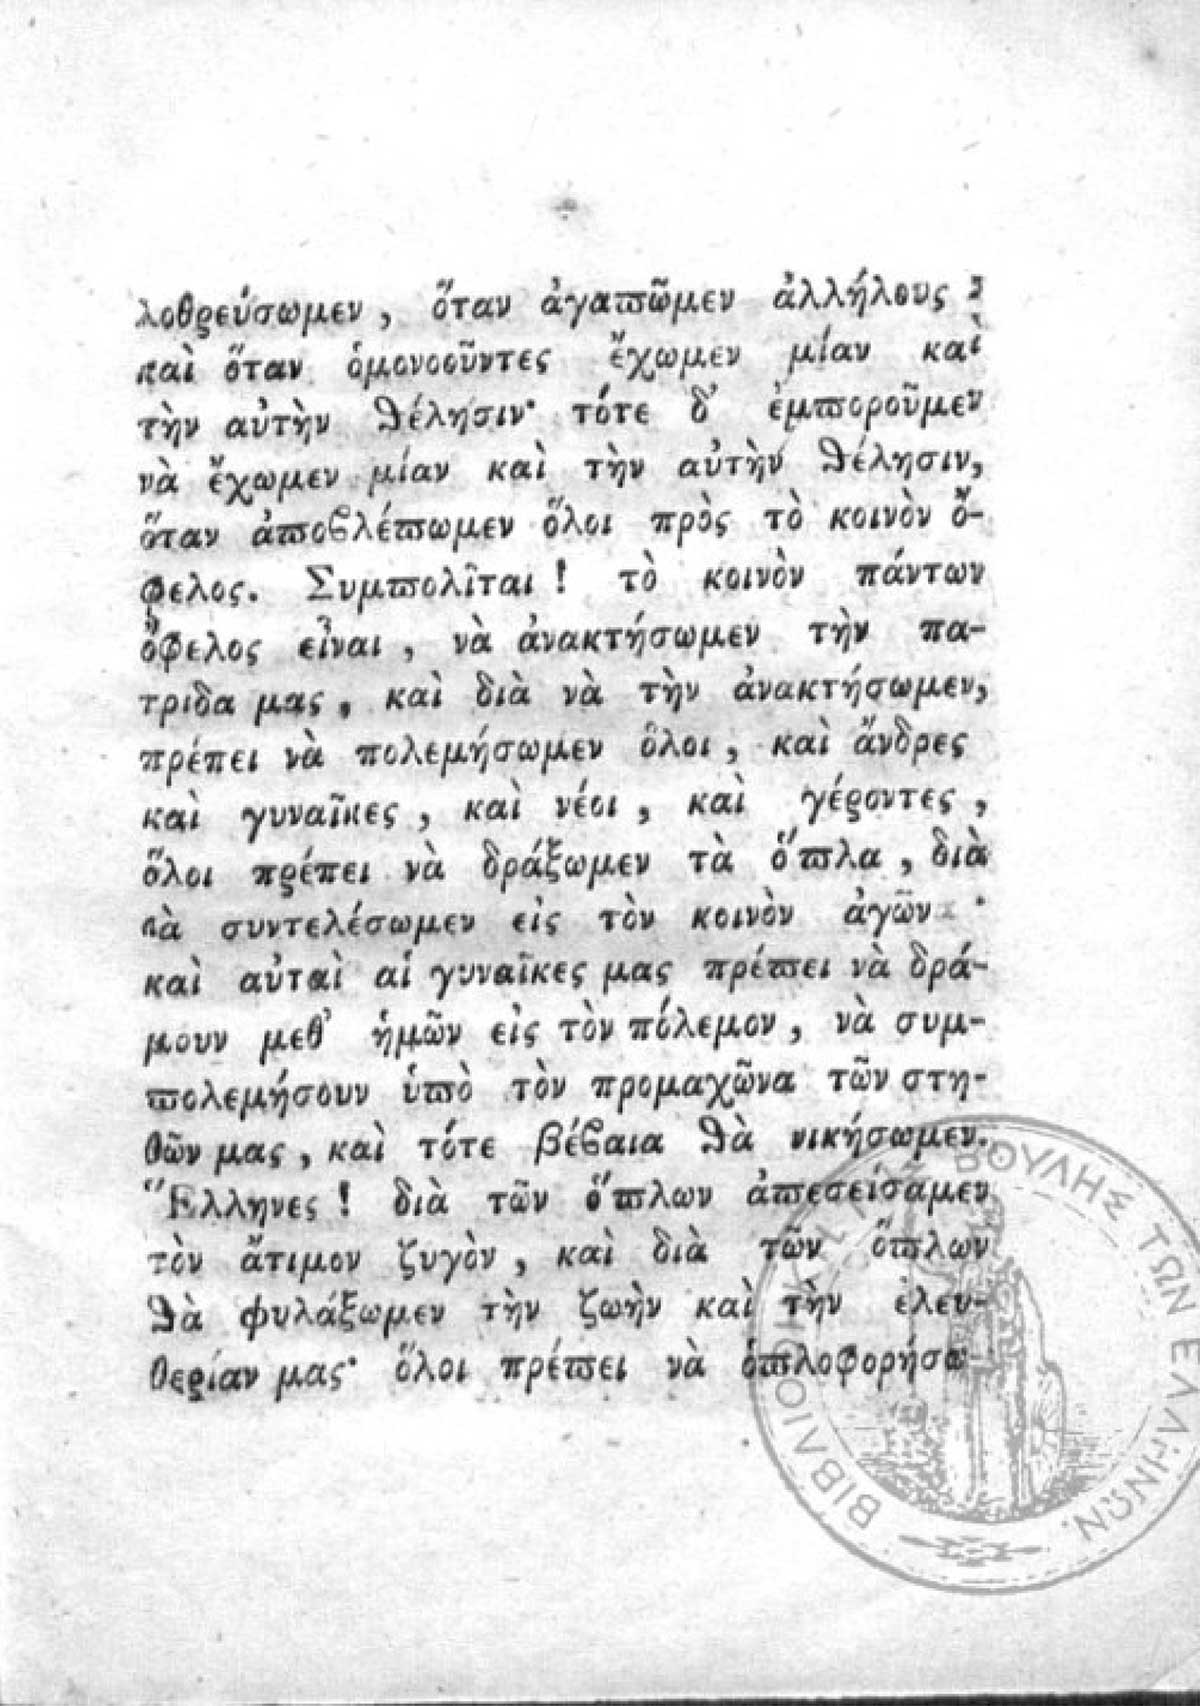 λοθρεύσωμεν, ὅταν ἀγαπῶμεν ἀλλήλους·
καὶ ὅταν ὁμονοοῦντες ἔχωμεν μίαν καὶ
τὴν αὐτὴν θέλησιν· τότε δ' ἐμποροῦμεν
νὰ ἔχωμεν μίαν καὶ τὴν αὐτὴν θέλησιν,
ὅταν ἀποβλέπωμεν ὅλοι πρὸς τὸ κοινὸν ὄ-
φελος. Συμπολῖται! τὸ κοινὸν πάντων
ὄφελος εἶναι, νὰ ἀνακτήσωμεν τὴν πα-
τριδα μας, καὶ διὰ νὰ τὴν ἀνακτήσωμεν,
πρέπει νὰ πολεμήσωμεν ὅλοι, καὶ ἄνδρες
καὶ γυναῖκες, καὶ νέοι, καὶ γέροντες,
ὅλοι πρέπει νὰ δράξωμεν τὰ ὅπλα, διὰ
νὰ συντελέσωμεν εἰς τὸν κοινὸν ἀγῶνα·
καὶ αὐταὶ αἱ γυναῖκες μας πρέπει νὰ δρά-
μουν μεθ' ἡμῶν εἰς τὸν πόλεμον, νὰ συμ-
πολεμήσουν ὑπὸ τὸν προμαχῶνα τῶν στη-
θῶν μας, καὶ τότε βέβαια θὰ νικήσωμεν.
Ἕλληνες! διὰ τῶν ὅπλων ἀπεσείσαμεν
τὸν ἄτιμον ζυγὸν, καὶ διὰ τῶν ὅπλων
θὰ φυλάξωμεν τὴν ζωὴν καὶ τὴν ἐλευ-
θερίαν μας· ὅλοι πρέπει νὰ ὁπλοφορήσω-
ΒΙΒΛΙΟΘΗΚΗ ΤΗΣ ΒΟΥΛΗΣ ΤΩΝ ΕΛΛΗΝΩΝ.